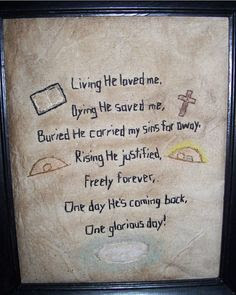 Living He loved me,
Dying He saved me,
Buried He carried my sins far away,
Rising He justified,
Freely forever,
One day He's coming back,
One glorious day!